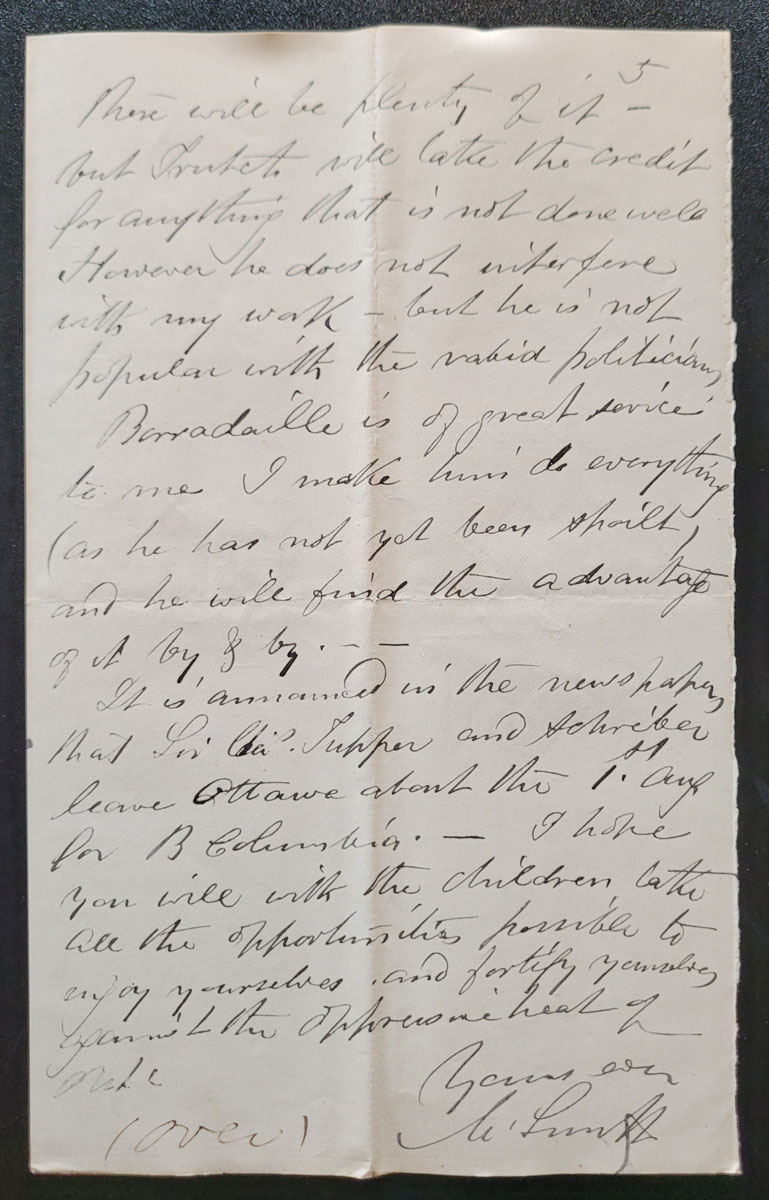 5
there will be plenty of it —
but Trutch will take the credit
for anything that is not done well
However he does not interfere
with my work – but he is not
popular with the rabid politicians
Borradaille is of great service
to me I make him do everything
(as he has not yet been spoilt)
and he will find the advantage
of it by & by. — —
It is announced in the newspapers
that Sir Chas. Tupper and Schreiber
leave Ottawa about the 1st Aug
for B Columbia. — I hope
you will with the children take
all the opportunities possible to
enjoy yourselves and fortify yourselves
against the oppressive heat of
Yours ever
(over)